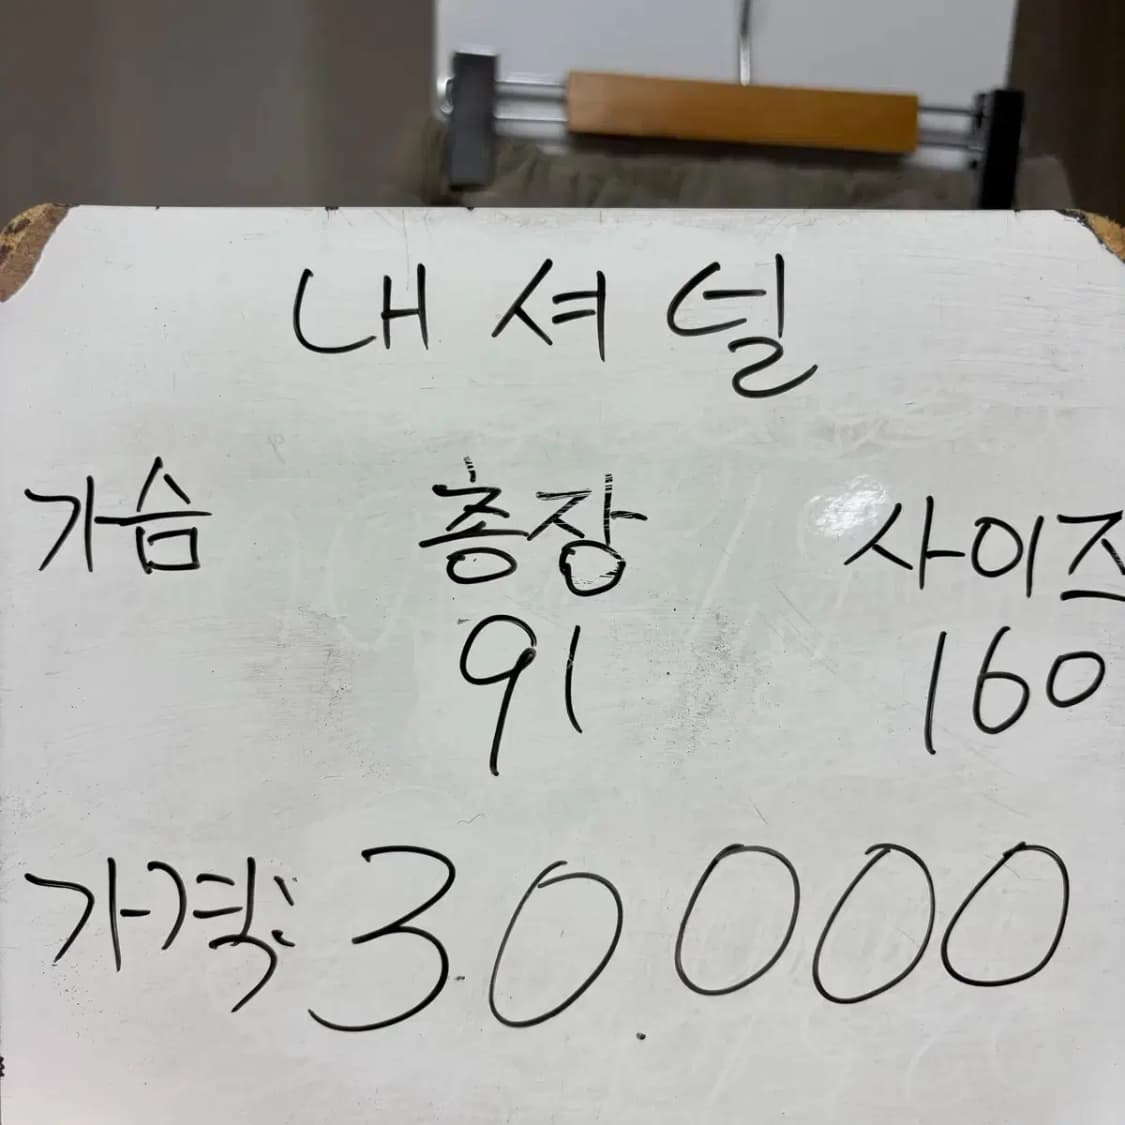 내셔널
가슴 총장 사이즈
91 160
가격: 30.000